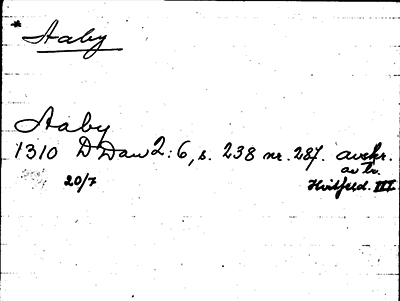 * Aaby
Aaby
1310 DDan 2:6, s. 238 nr. 287. avskr.
av tr.
20/7 Hvitfeld. III